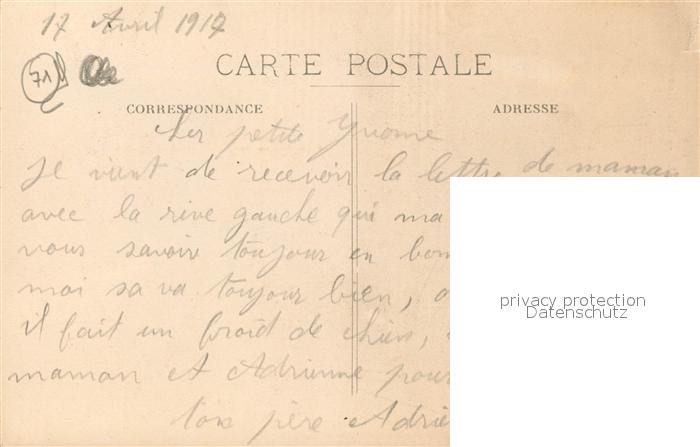 17 Avril 1917
71
CARTE POSTALE
CORRESPONDANCE
ADRESSE
Cher petite Yvonne
Je vient de recevoir la lettre de maman
avec la rive gauche qui ma
vous savoir toujour en bon
moi sa va toujour bien,
il fait un froid de chien,
maman et Adrienne pour
ton père Adrie
privacy protection
Datenschutz